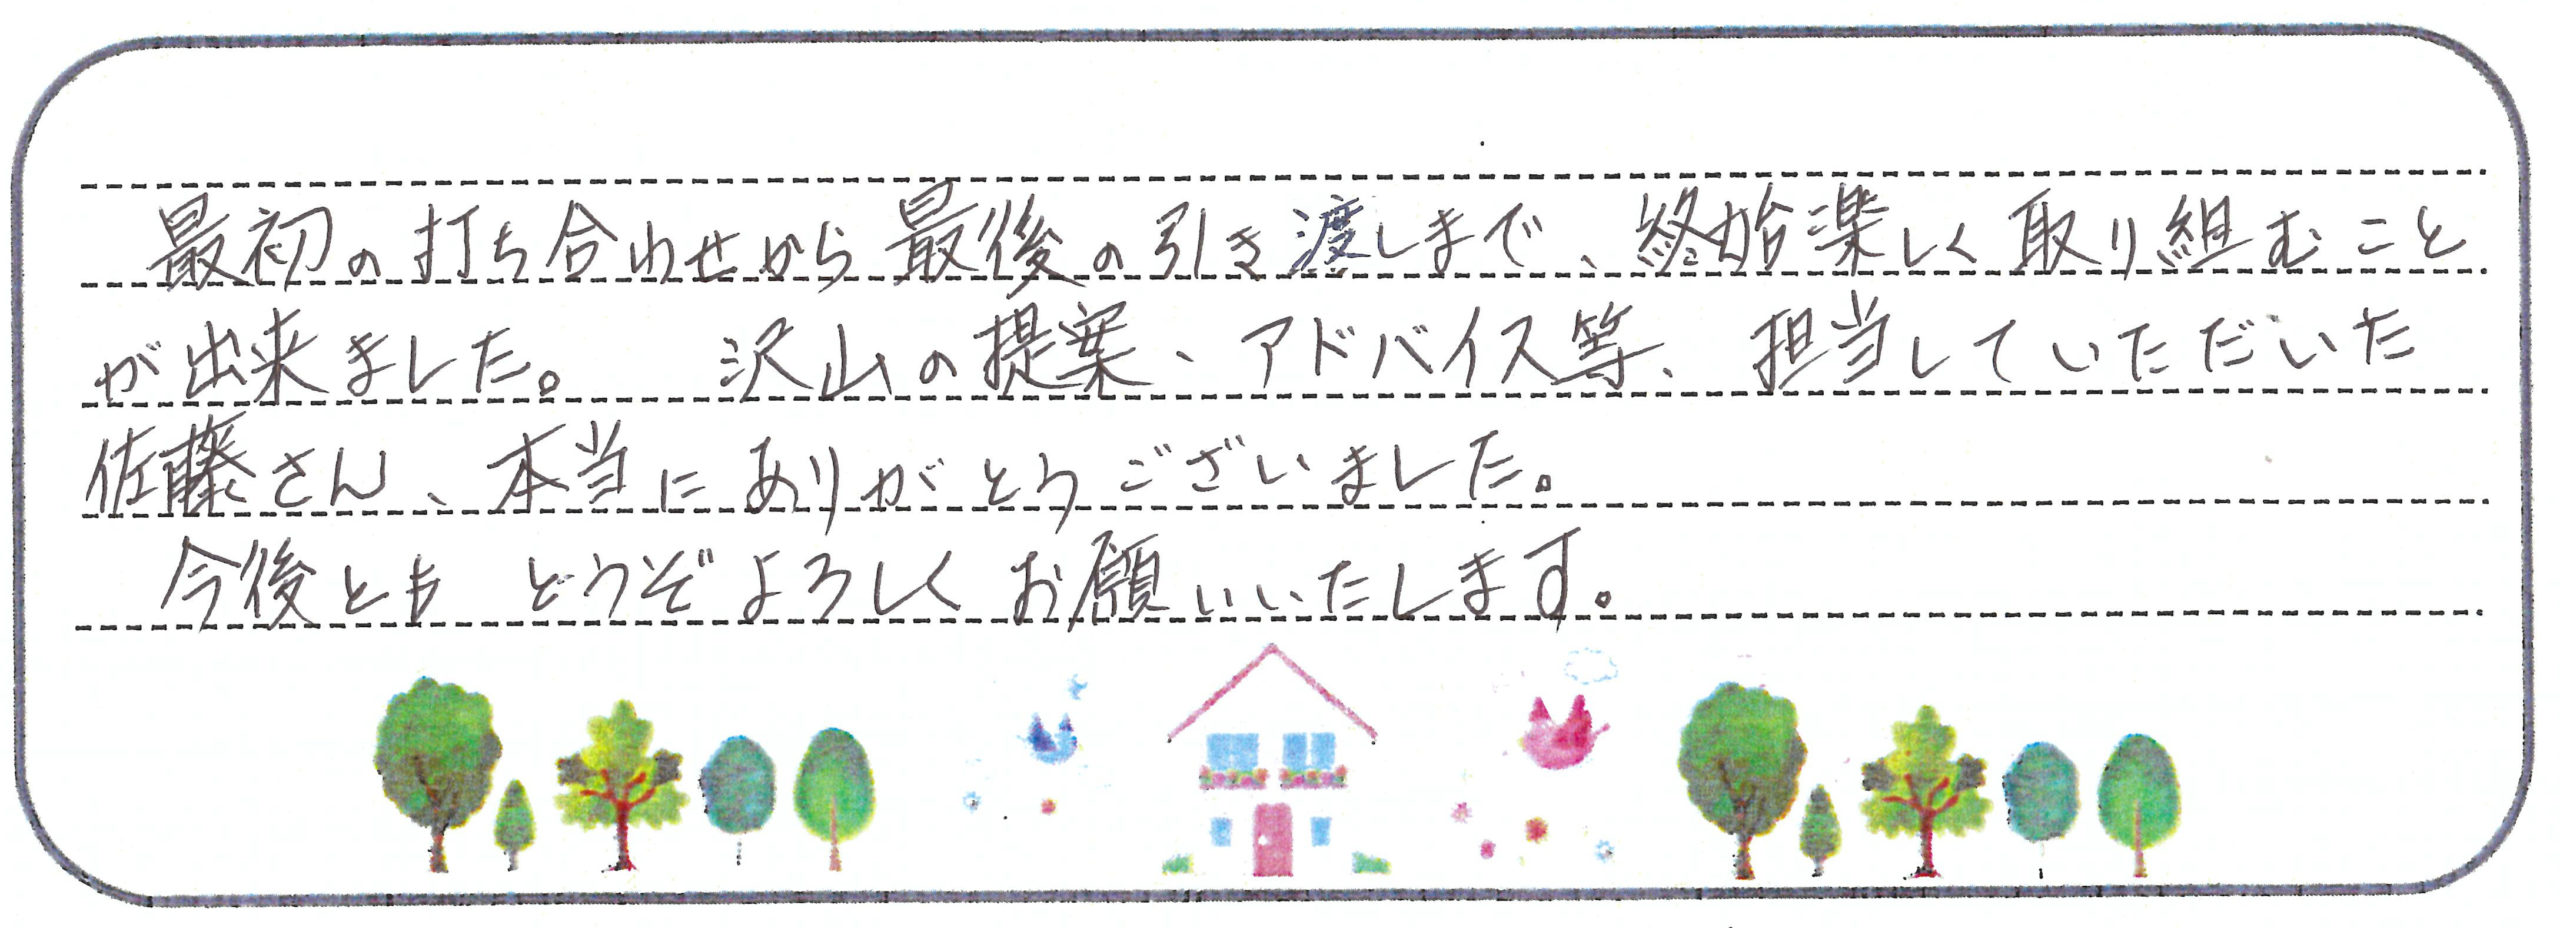 最初の打ち合わせから最後の引き渡しまで、終始楽しく取り組むこと
が出来ました。　沢山の提案、アドバイス等、担当していただいた
佐藤さん、本当にありがとうございました。
今後とも どうぞよろしくお願いいたします。